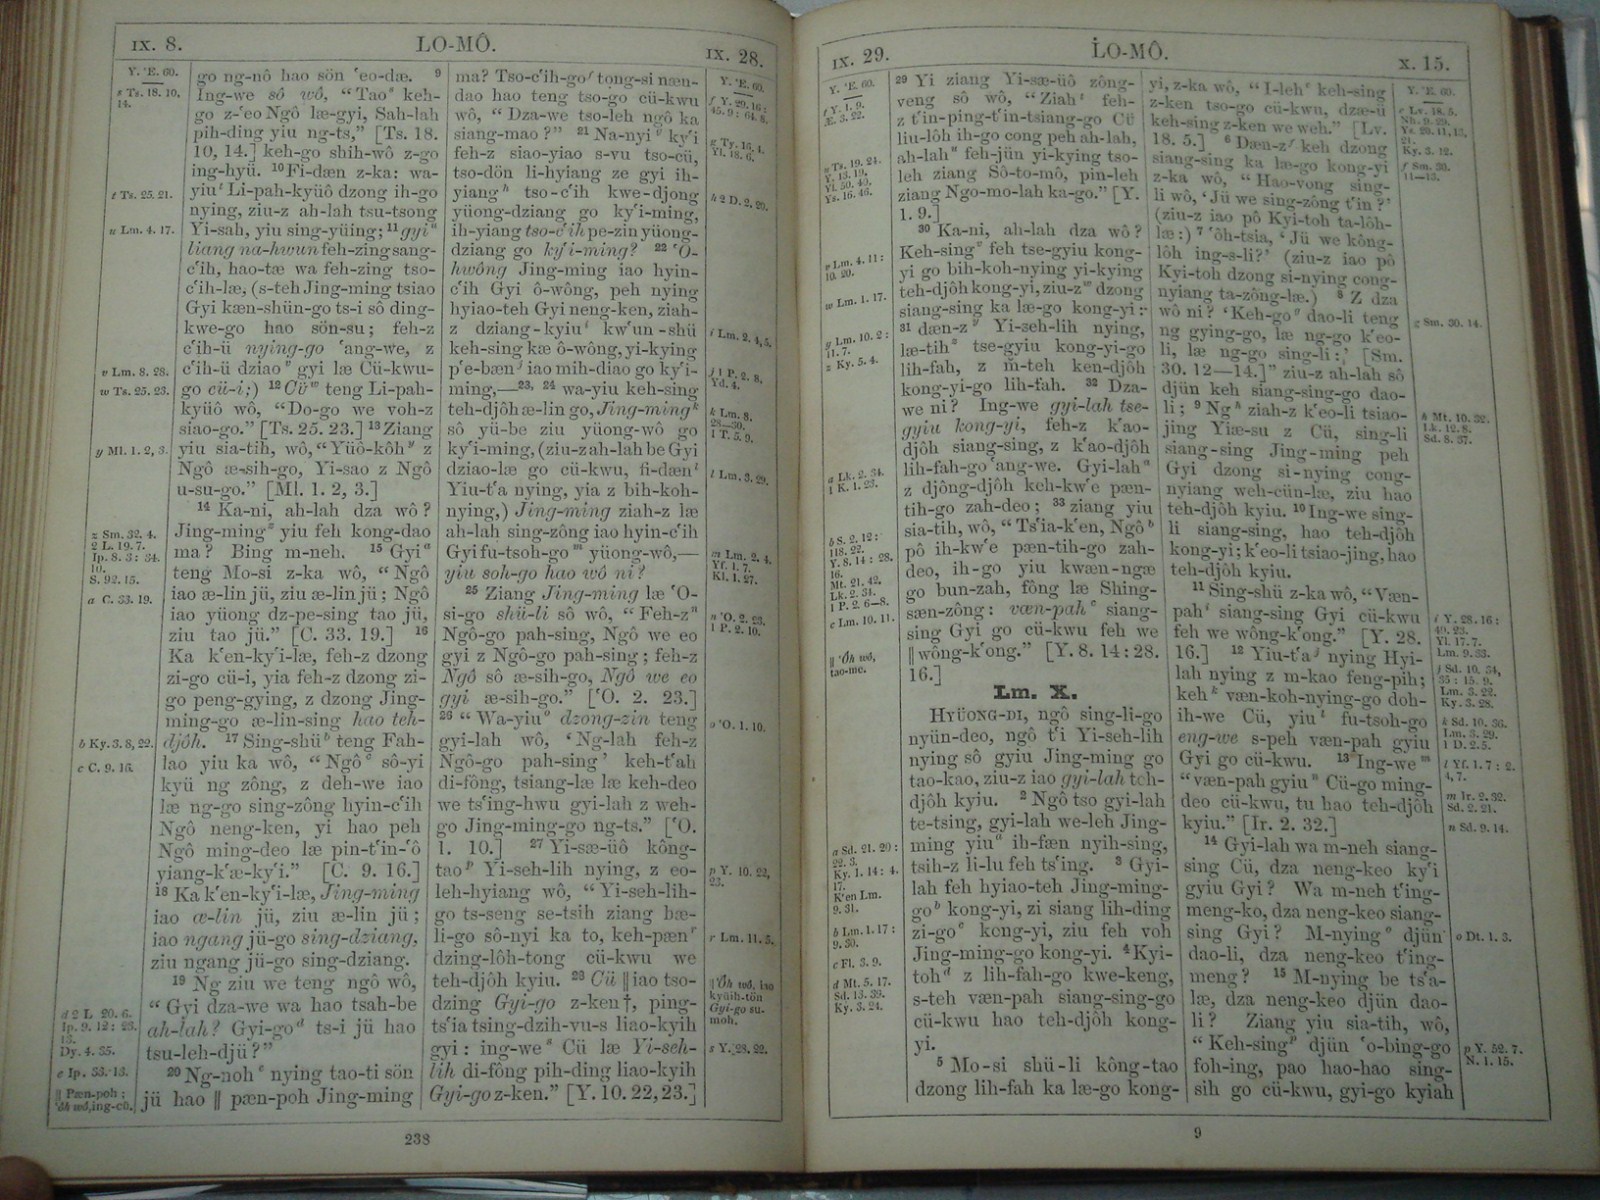 IX. 8.
LO-MÔ.
IX. 28.
Y. ʻE. 60.
s Ts. 18. 10,
14.
t Ts. 25. 21.
u Lm. 4. 17.
v Lm. 8. 28.
w Ts. 25. 23.
y Ml. 1. 2, 3.
z Sm. 32. 4.
2 L. 19. 7.
Ip. 8. 3: 34.
10.
S. 92. 15.
a C. 33. 19.
b Ky. 3. 8, 22.
c C. 9. 16.
d 2 L. 20. 6.
Ip. 9. 12: 23.
13.
Dy. 4. 35.
e Ip. 33. 13.
|| Pæn-poh;
ʻôh wô, ing-cü.
go ng-nô hao sön ʻeo-dæ. 9
Ing-we sô wô, “Tao s keh-
go z-ʻeo Ngô læ-gyi, Sah-lah
pih-ding yiu ng-ts,” [Ts. 18.
10, 14.] keh-go shih-wô z-go
ing-hyü. 10 Fi-dæn z-ka: wa-
yiu t Li-pah-kyüô dzong ih-go
nying, ziu-z ah-lah tsu-tsong
Yi-sah, yiu sing-yüing; 11 gyi u
liang na-hwun feh-zing sang-
cʻih, hao-tæ wa feh-zing tso-
cʻih-læ, (s-teh Jing-ming tsiao
Gyi kæn-shün-go ts-i sô ding-
kwe-go hao sön-su; feh-z
cʻih-ü nying-go ʻang-we, z
cʻih-ü dziao v gyi læ Cü-kwu-
go cü-i;) 12 Cü w teng Li-pah-
kyüô wô, “Do-go we voh-z
siao-go.” [Ts. 25. 23.] 13 Ziang
yiu sia-tih, wô, “Yüô-kôh y z
Ngô æ-sih-go, Yi-sao z Ngô
u-su-go.” [Ml. 1. 2, 3.]
14 Ka-ni, ah-lah dza wô?
Jing-ming z yiu feh kong-dao
ma? Bing m-neh. 15 Gyi a
teng Mo-si z-ka wô, “Ngô
iao æ-lin jü, ziu æ-lin jü; Ngô
iao yüong dz-pe-sing tao jü,
ziu tao jü.” [C. 33. 19.] 16
Ka kʻen-kyʻi-læ, feh-z dzong
zi-go cü-i, yia feh-z dzong zi-
go peng-gying, z dzong Jing-
ming-go æ-lin-sing hao teh-
djôh. 17 Sing-shü b teng Fah-
lao yiu ka wô, “Ngô c sô-yi
kyü ng zông, z deh-we iao
læ ng-go sing-zông hyin-cʻih
Ngô neng-ken, yi hao peh
Ngô ming-deo læ pin-tʻin-ʻô
yiang-kʻæ-kyʻi.” [C. 9. 16.]
18 Ka kʻen-kyʻi-læ, Jing-ming
iao æ-lin jü, ziu æ-lin jü;
iao ngang jü-go sing-dziang,
ziu ngang jü-go sing-dziang.
19 Ng ziu we teng ngô wô,
“Gyi dza-we wa hao tsah-be
ah-lah? Gyi-go d ts-i jü hao
tsu-leh-djü?”
20 Ng-noh e nying tao-ti sön
jü hao || pæn-poh Jing-ming
ma? Tso-cʻih-go f tong-si næn-
dao hao teng tso-go cü-kwu
wô, “Dza-we tso-leh ngô ka
siang-mao?” 21 Na-nyi g kyʻi
feh-z siao-yiao s-vu tso-cü,
tso-dön li-hyiang ze gyi ih-
yiang h tso-cʻih kwe-djong
yüong-dziang go kyʻi-ming,
ih-yiang tso-cʻih pe-zin yüong-
dziang go kyʻi-ming? 22 ʻO-
hwông Jing-ming iao hyin-
cʻih Gyi ô-wông, peh nying
hyiao-teh Gyi neng-ken, ziah-
z dziang-kyiu i kwʻun-shü
keh-sing kæ ô-wông, yi-kying
pʻe-bæn j iao mih-diao go kyʻi-
ming,—23, 24 wa-yiu keh-sing
teh-djôh æ-lin go, Jing-ming k
sô yü-be ziu yüong-wô go
kyʻi-ming, (ziu-z ah-lah be Gyi
dziao-læ go cü-kwu, fi-dæn l
Yiu-tʻa nying, yia z bih-koh-
nying,) Jing-ming ziah-z læ
ah-lah sing-zông iao hyin-cʻih
Gyi fu-tsoh-go m yüong-wô,—
yiu soh-go hao wô ni?
25 Ziang Jing-ming læ ʻO-
si-go shü-li sô wô, “Feh-z n
Ngô-go pah-sing, Ngô we eo
gyi z Ngô-go pah-sing; feh-z
Ngô sô æ-sih-go, Ngô we eo
gyi æ-sih-go.” [ʻO. 2. 23.]
26 “Wa-yiu o dzong-zin teng
gyi-lah wô, ‘Ng-lah feh-z
Ngô-go pah-sing’ keh-tʻah
di-fông, tsiang-læ læ keh-deo
we tsʻing-hwu gyi-lah z weh-
go Jing-ming-go ng-ts.” [ʻO.
1. 10.] 27 Yi-sæ-üô kông-
tao p Yi-seh-lih nying, z eo-
leh-hyiang wô, “Yi-seh-lih-
go ts-seng se-tsih ziang bæ-
li-go sô-nyi ka to, keh-pæn r
dzing-lôh-tong cü-kwu we
teh-djôh kyiu. 28 Cü || iao tso-
dzing Gyi-go z-ken†, ping-
tsʻia tsing-dzih-vu-s liao-kyih
gyi: ing-we s Cü læ Yi-seh-
lih di-fông pih-ding liao-kyih
Gyi-go z-ken.” [Y. 10. 22, 23.]
Y. ʻE. 60.
f Y. 29. 16:
45. 9: 64. 8.
g Ty. 16. 4.
Yl. 18. 6.
h 2 D. 2. 20.
i Lm. 2. 4, 5.
j 1 P. 2. 8.
Yd. 4.
k Lm. 8.
28—30.
1 T. 5. 9.
l Lm. 3. 29.
m Lm. 2. 4.
Yf. 1. 7.
Kl. 1. 27.
n ʻO. 2. 23.
1 P. 2. 10.
o ʻO. 1. 10.
p Y. 10. 22,
23.
r Lm. 11. 5.
|| ʻÔh wô, iao
kyüih-tön
Gyi-go su-
moh.
s Y. 28. 22.
238
IX. 29.
LO-MÔ.
X. 15.
Y. ʻE. 60.
t Y. 1. 9.
Æ. 3. 22.
u Ts. 19. 24.
Y. 13. 19.
Yl. 50. 40.
Ys. 16. 46.
v Lm. 4. 11:
10. 20.
w Lm. 1. 17.
y Lm. 10. 2:
11. 7.
z Ky. 5. 4.
a Lk. 2. 34.
1 K. 1. 23.
b S. 2. 12:
118. 22.
Y. 8. 14: 28.
16.
Mt. 21. 42.
Lk. 2. 34.
1 P. 2. 6—8.
c Lm. 10. 11.
|| ʻÔh wô,
tao-me.
a Sd. 21. 20:
22. 3.
Ky. 1. 14: 4.
17.
Kʻen Lm.
9. 31.
b Lm. 1. 17:
9. 30.
c Fl. 3. 9.
d Mt. 5. 17.
Sd. 13. 39.
Ky. 3. 24.
29 Yi ziang Yi-sæ-üô zông-
veng sô wô, “Ziah t feh-
z tʻin-ping-tʻin-tsiang-go Cü
liu-lôh ih-go cong peh ah-lah,
ah-lah u feh-jün yi-kying tso-
leh ziang Sô-to-mô, pin-leh
ziang Ngo-mo-lah ka-go.” [Y.
1. 9.]
30 Ka-ni, ah-lah dza wô?
Keh-sing v feh tse-gyiu kong-
yi go bih-koh-nying yi-kying
teh-djôh kong-yi, ziu-z w dzong
siang-sing ka læ-go kong-yi:-
31 dæn-z y Yi-seh-lih nying,
læ-tih z tse-gyiu kong-yi-go
lih-fah, z m-teh ken-djôh
kong-yi-go lih-fah. 32 Dza-
we ni? Ing-we gyi-lah tse-
gyiu kong-yi, feh-z kʻao-
djôh siang-sing, z kʻao-djôh
lih-fah-go ʻang-we. Gyi-lah a
z djông-djôh keh-kwʻe pæn-
tih-go zah-deo; 33 ziang yiu
sia-tih, wô, “Tsʻia-kʻen, Ngô b
pô ih-kwʻe pæn-tih-go zah-
deo, ih-go yiu kwæn-ngæ
go bun-zah, fông læ Shing-
sæn-zông: væn-pah c siang-
sing Gyi go cü-kwu feh we
|| wông-kʻong.” [Y. 8. 14: 28.
16.]
Lm. X.
HYÜONG-DI, ngô sing-li-go
nyün-deo, ngô tʻi Yi-seh-lih
nying sô gyiu Jing-ming go
tao-kao, ziu-z iao gyi-lah teh-
djôh kyiu. 2 Ngô tso gyi-lah
te-tsing, gyi-lah we-leh Jing-
ming yiu a ih-fæn nyih-sing,
tsih-z li-lu feh tsʻing. 3 Gyi-
lah feh hyiao-teh Jing-ming-
go b kong-yi, zi siang lih-ding
zi-go c kong-yi, ziu feh voh
Jing-ming-go kong-yi. 4 Kyi-
toh d z lih-fah-go kwe-keng,
s-teh væn-pah siang-sing-go
cü-kwu hao teh-djôh kong-
yi.
5 Mo-si shü-li kông-tao
dzong lih-fah ka læ-go kong-
yi, z-ka wô, “I-leh e keh-sing
z-ken tso-go cü-kwu, dzæ-ü
keh-sing z-ken we weh.” [Lv.
18. 5.] 6 Dæn-z f keh dzong
siang-sing ka læ-go kong-yi
z-ka wô, “Hao-vong sing-
li wô, ‘Jü we sing-zông tʻin?’
(ziu-z iao pô Kyi-toh ta-lôh-
læ:) 7 ʻôh-tsia, ‘Jü we kông-
lôh ing-s-li?’ (ziu-z iao pô
Kyi-toh dzong si-nying cong-
nyiang ta-zông-læ.) 8 Z dza
wô ni? ‘Keh-go g dao-li teng
ng gying-go, læ ng-go kʻeo-
li, læ ng-go sing-li:’ [Sm.
30. 12—14.]” ziu-z ah-lah sô
djün keh siang-sing-go dao-
li; 9 Ng h ziah-z kʻeo-li tsiao-
jing Yiæ-su z Cü, sing-li
siang-sing Jing-ming peh
Gyi dzong si-nying cong-
nyiang weh-cün-læ, ziu hao
teh-djôh kyiu. 10 Ing-we sing-
li siang-sing, hao teh-djôh
kong-yi; kʻeo-li tsiao-jing, hao
teh-djôh kyiu.
11 Sing-shü z-ka wô, “Væn-
pah i siang-sing Gyi cü-kwu
feh we wông-kʻong.” [Y. 28.
16.] 12 Yiu-tʻa j nying Hyi-
lah nying z m-kao feng-pih;
keh k væn-koh-nying-go doh-
ih-we Cü, yiu l fu-tsoh-go
eng-we s-peh væn-pah gyiu
Gyi go cü-kwu. 13 Ing-we m
“væn-pah gyiu n Cü-go ming-
deo cü-kwu, tu hao teh-djôh
kyiu.” [Ir. 2. 32.]
14 Gyi-lah wa m-neh siang-
sing Cü, dza neng-keo kyʻi
gyiu Gyi? Wa m-neh tʻing-
meng-ko, dza neng-keo siang-
sing Gyi? M-nying o djün
dao-li, dza neng-keo tʻing-
meng? 15 M-nying be tsʻa-
læ, dza neng-keo djün dao-
li? Ziang yiu sia-tih, wô,
“Keh-sing p djün ʻo-bing-go
foh-ing, pao hao-hao sing-
sih go cü-kwu, gyi-go kyiah
Y. ʻE. 60.
e Lv. 18. 5.
Nh. 9. 29.
Ys. 20. 11, 13,
21.
Ky. 3. 12.
f Sm. 30.
11—13.
g Sm. 30. 14.
h Mt. 10. 32.
Lk. 12. 8.
Sd. 8. 37.
i Y. 28. 16:
49. 23.
Yl. 17. 7.
Lm. 9. 33.
j Sd. 10. 34,
35: 15. 9.
Lm. 3. 22.
Ky. 3. 28.
k Sd. 10. 36.
Lm. 3. 29.
1 D. 2. 5.
l Yf. 1. 7: 2.
4, 7.
m Ir. 2. 32.
Sd. 2. 21.
n Sd. 9. 14.
o Dt. 1. 3.
p Y. 52. 7.
N. 1. 15.
9